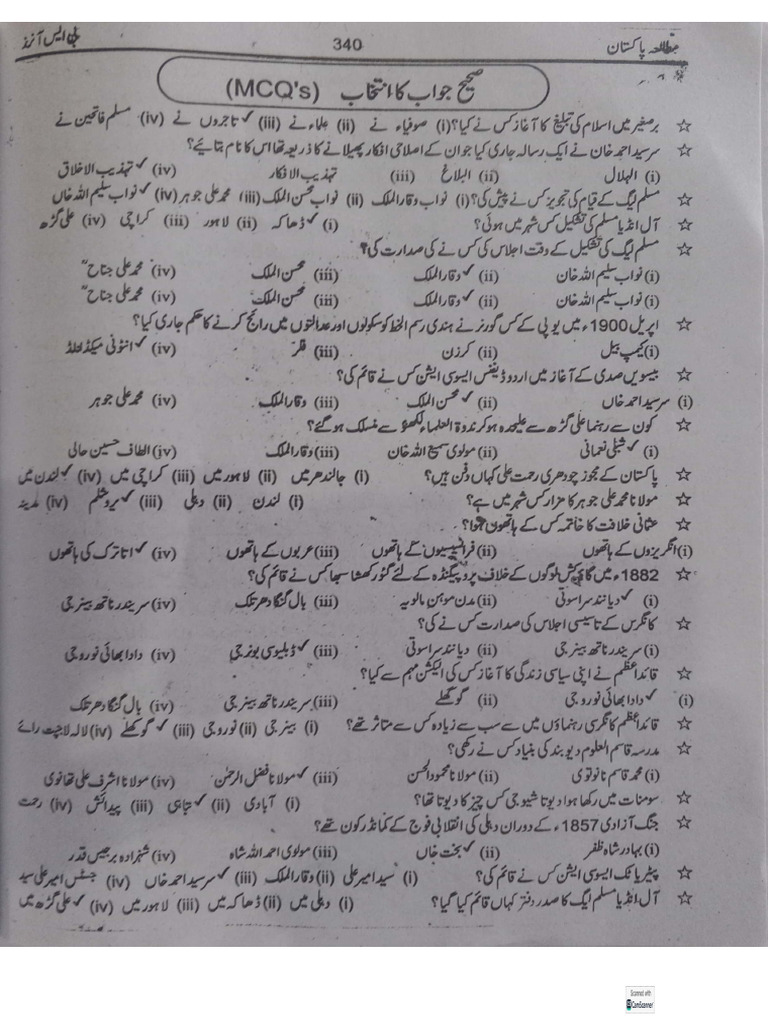 مطالعہ پاکستان 340 بی ایس آنرز
صحیح جواب کا انتخاب (MCQ's)
☆ برصغیر میں اسلام کی تبلیغ کا آغاز کس نے کیا؟ (i) صوفیاء نے (ii) علماء نے (iii) ✓ تاجروں نے (iv) مسلم فاتحین نے
☆ سرسید احمد خان نے ایک رسالہ جاری کیا جو ان کے اصلاحی افکار پھیلانے کا ذریعہ تھا اس کا نام بتائیے؟
(i) الہلال (ii) البلاغ (iii) تہذیب الافکار (iv) ✓ تہذیب الاخلاق
☆ مسلم لیگ کے قیام کی تجویز کس نے پیش کی؟ (i) نواب وقار الملک (ii) نواب محسن الملک (iii) محمد علی جوہر (iv) ✓ نواب سلیم اللہ خاں
☆ آل انڈیا مسلم کی تشکیل کس شہر میں ہوئی؟ (i) ✓ ڈھاکہ (ii) لاہور (iii) کراچی (iv) علی گڑھ
☆ مسلم لیگ کی تشکیل کے وقت اجلاس کی کس نے کی صدارت کی؟
(i) نواب سلیم اللہ خان (ii) ✓ وقار الملک (iii) محسن الملک (iv) محمد علی جناحؒ
(i) نواب سلیم اللہ خان (ii) ✓ وقار الملک (iii) محسن الملک (iv) محمد علی جناحؒ
☆ اپریل 1900ء میں یو پی کے کس گورنر نے ہندی رسم الخط کو سکولوں اور عدالتوں میں رائج کرنے کا حکم جاری کیا؟
(i) کیمپ بیل (ii) کرزن (iii) فلر (iv) ✓ انٹونی میکڈانلڈ
☆ بیسویں صدی کے آغاز میں اردو ڈیفنس ایسوسی ایشن کس نے قائم کی؟
(i) سرسید احمد خاں (ii) ✓ محسن الملک (iii) وقار الملک (iv) محمد علی جوہر
☆ کون سے رہنما علی گڑھ سے علیحدہ ہو کر ندوۃ العلماء لکھنؤ سے منسلک ہو گئے؟
(i) ✓ شبلی نعمانی (ii) مولوی سمیع اللہ خان (iii) وقار الملک (iv) الطاف حسین حالی
☆ پاکستان کے مجوز چودھری رحمت علی کہاں دفن ہیں؟ (i) جالندھر میں (ii) لاہور میں (iii) کراچی میں (iv) ✓ لندن میں
☆ مولانا محمد علی جوہر کا مزار کس شہر میں ہے؟ (i) لندن (ii) دہلی (iii) ✓ یروشلم (iv) مدینہ
☆ عثمانی خلافت کا خاتمہ کس کے ہاتھوں ہوا؟
(i) انگریزوں کے ہاتھوں (ii) فرانسیسیوں کے ہاتھوں (iii) عربوں کے ہاتھوں (iv) ✓ اتاترک کی ہاتھوں
☆ 1882ء میں گاؤکش لوگوں کے خلاف پروپیگنڈہ کے لئے گئورکھشا سبھا کس نے قائم کی؟
(i) ✓ دیانند سراسوتی (ii) مدن موہن مالویہ (iii) بال گنگا دھر تلک (iv) سریندر ناتھ بینرجی
☆ کانگرس کے تاسیسی اجلاس کی صدارت کس نے کی؟
(i) سریندر ناتھ بینرجی (ii) دیانند سراسوتی (iii) ✓ ڈبلیو سی بونرجی (iv) دادا بھائی نوروجی
☆ قائداعظم نے اپنی سیاسی زندگی کا آغاز کس کی الیکشن مہم سے کیا؟
(i) ✓ دادا بھائی نوروجی (ii) گوکھلے (iii) سریندر ناتھ بینرجی (iv) بال گنگا دھر تلک
☆ قائداعظم کانگرسی رہنماؤں میں سب سے زیادہ کس سے متاثر تھے؟ (i) بینرجی (ii) نوروجی (iii) ✓ گوکھلے (iv) لالہ لاجپت رائے
☆ مدرسہ قاسم العلوم دیوبند کی بنیاد کس نے رکھی؟
(i) محمد قاسم نانوتوی (ii) مولانا محمود الحسن (iii) ✓ مولانا فضل الرحمٰن (iv) مولانا اشرف علی تھانوی
☆ سومنات میں رکھا ہوا دیوتا شیوجی کس چیز کا دیوتا تھا؟ (i) آبادی (ii) ✓ تباہی (iii) پیدائش (iv) رحمت
☆ جنگ آزادی 1857ء کے دوران دہلی کی انقلابی فوج کے کمانڈر کون تھے؟
(i) بہادر شاہ ظفر (ii) ✓ بخت خاں (iii) مولوی احمد اللہ شاہ (iv) شہزادہ برجیس قدر
☆ پیٹریاٹک ایسوسی ایشن کس نے قائم کی؟ (i) سید امیر علی (ii) وقار الملک (iii) ✓ سرسید احمد خاں (iv) جسٹس امیر علی سید
☆ آل انڈیا مسلم لیگ کا صدر دفتر کہاں قائم کیا گیا؟ (i) دہلی میں (ii) ڈھاکہ میں (iii) لاہور میں (iv) ✓ علی گڑھ میں
Scanned with
CamScanner